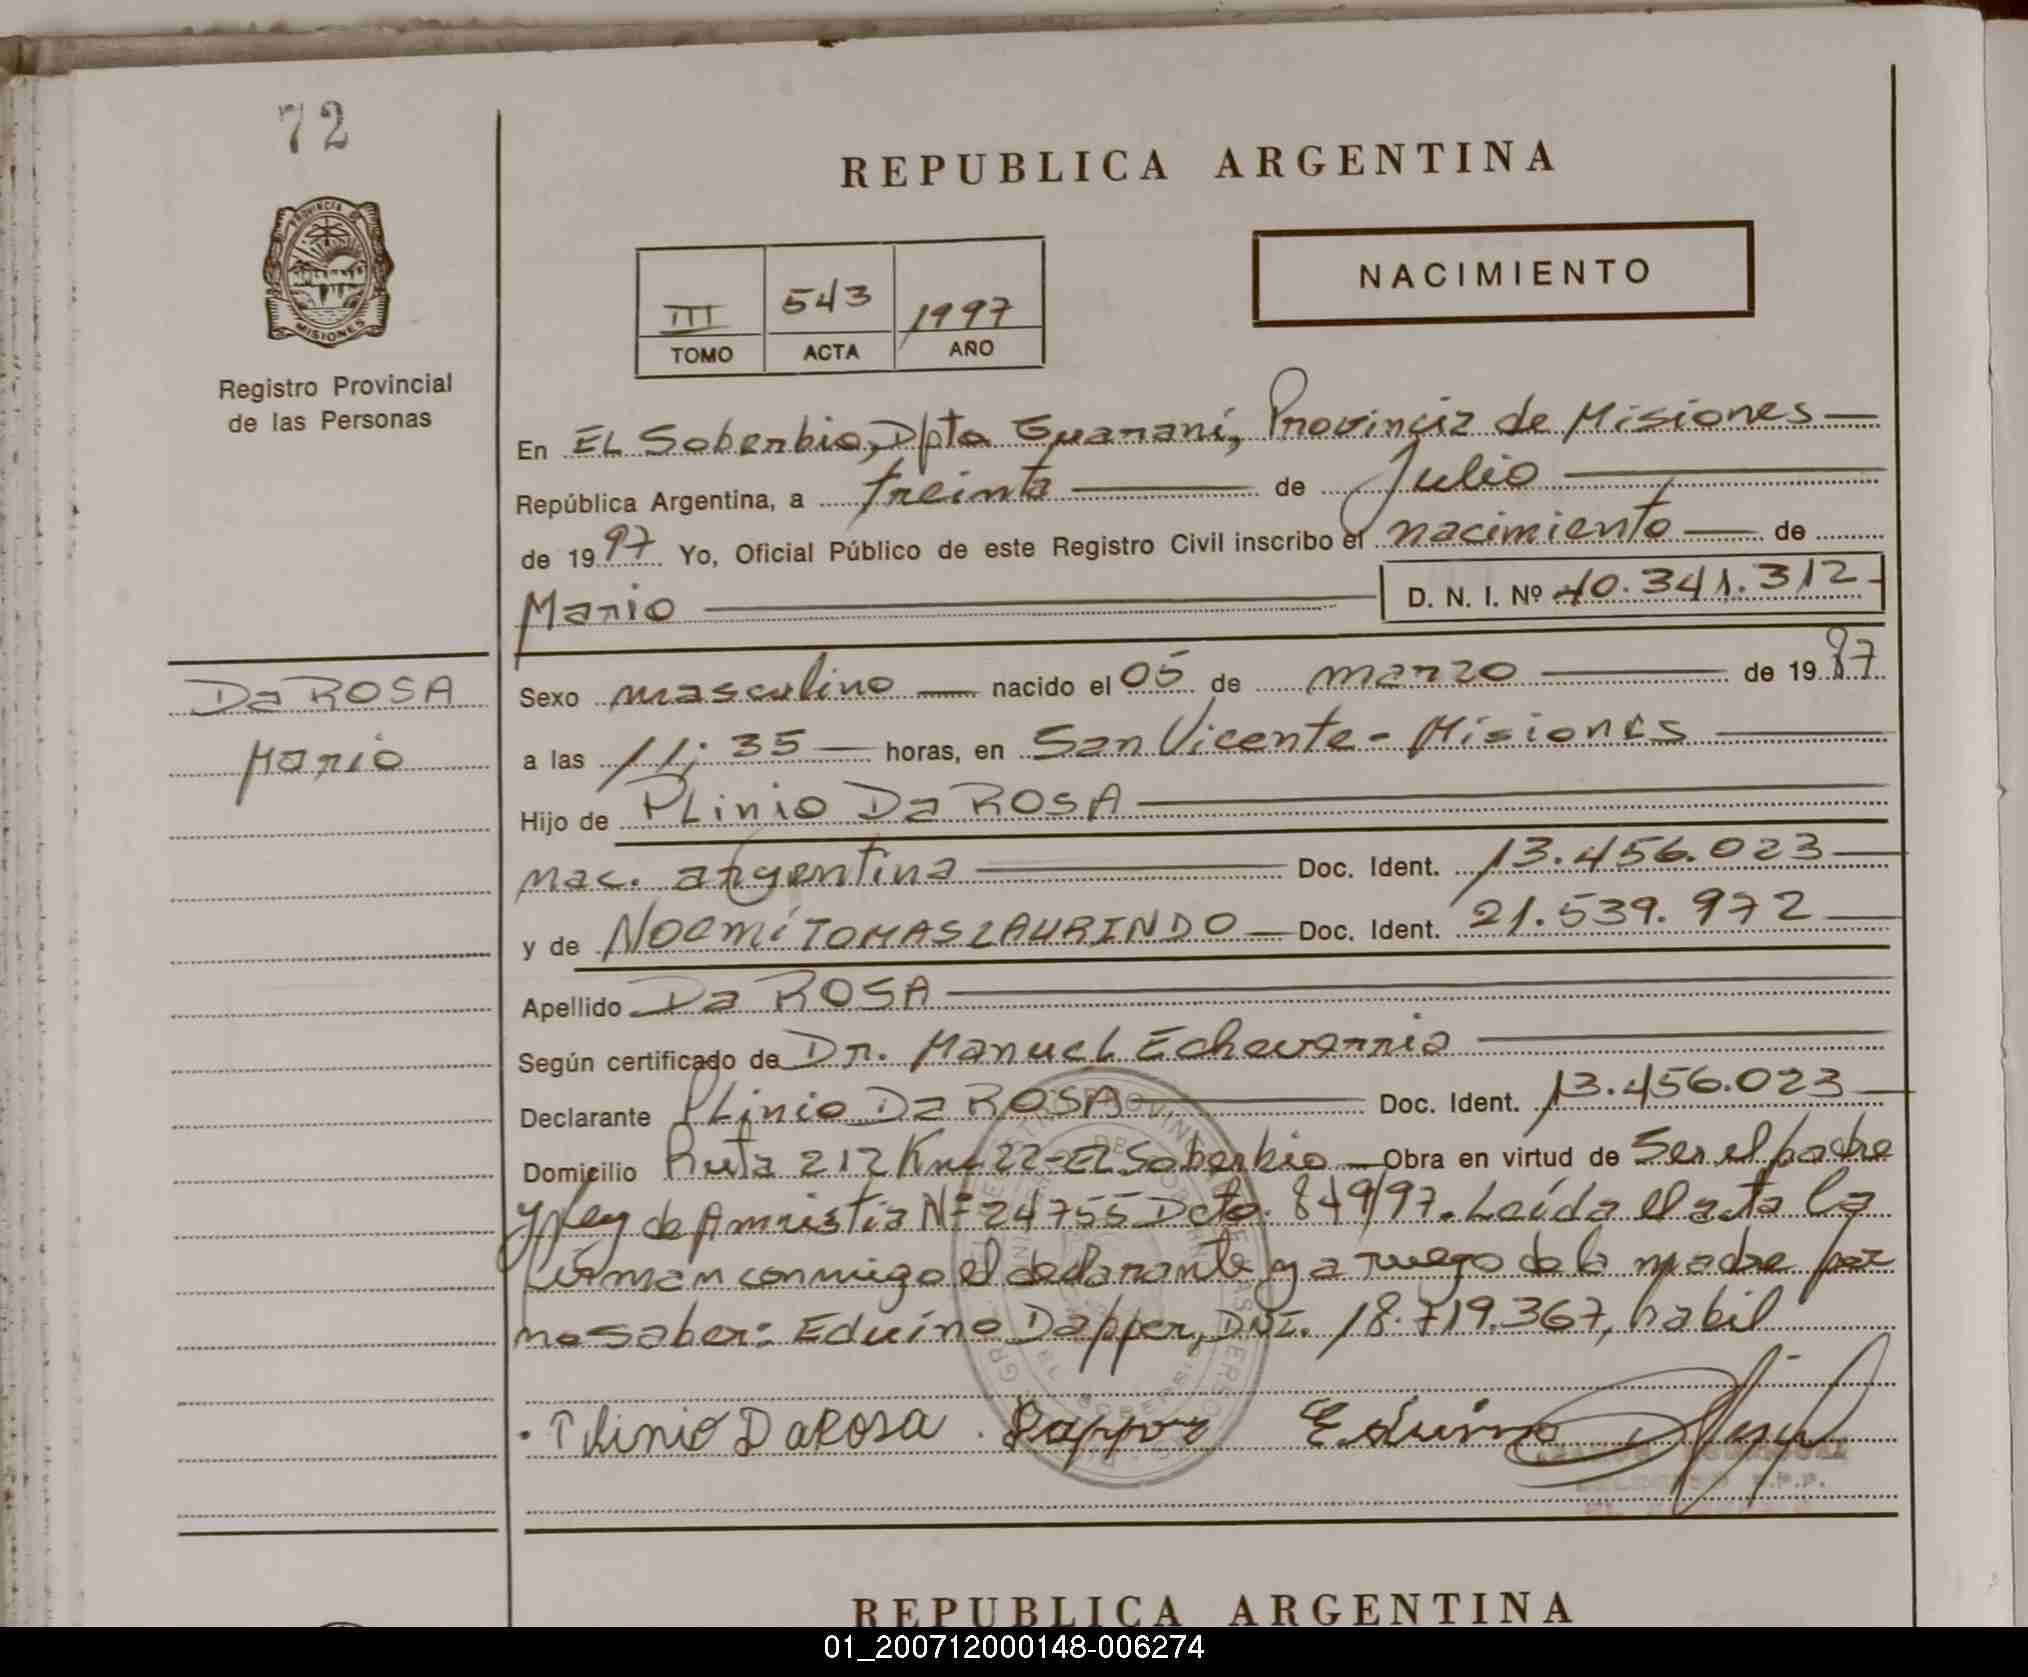 72
REPUBLICA ARGENTINA
NACIMIENTO
III 543 1997
TOMO ACTA AÑO
PROVINCIA DE
MISIONES
Registro Provincial
de las Personas
En EL Soberbio, Dpto Guaraní, Provincia de Misiones
República Argentina, a treinta de Julio
de 1997 Yo, Oficial Público de este Registro Civil inscribo el nacimiento de
Mario D. N. I. Nº 40.341.312
Da ROSA
Mario
Sexo masculino nacido el 05 de marzo de 1987
a las 11:35 horas, en San Vicente - Misiones
Hijo de PLinio Da ROSA
nac. argentina Doc. Ident. 13.456.023
y de NOEMÍ TOMASZAURINDO Doc. Ident. 21.539.972
Apellido Da ROSA
Según certificado de Dr. Manuel Echevarria
Declarante PLinio Da ROSA Doc. Ident. 13.456.023
Domicilio Ruta 212 Km 22-El Soberbio Obra en virtud de Ser el padre
y Ley de Amnistia Nº 24755 Dcto. 849/97. Leída el acta la
firman conmigo el declarante y a ruego de la madre por
no saber: Eduino Dapper, DNI. 18.719.367, habil
Plinio DaRosa Dapper Eduino
REPUBLICA ARGENTINA
01_200712000148-006274